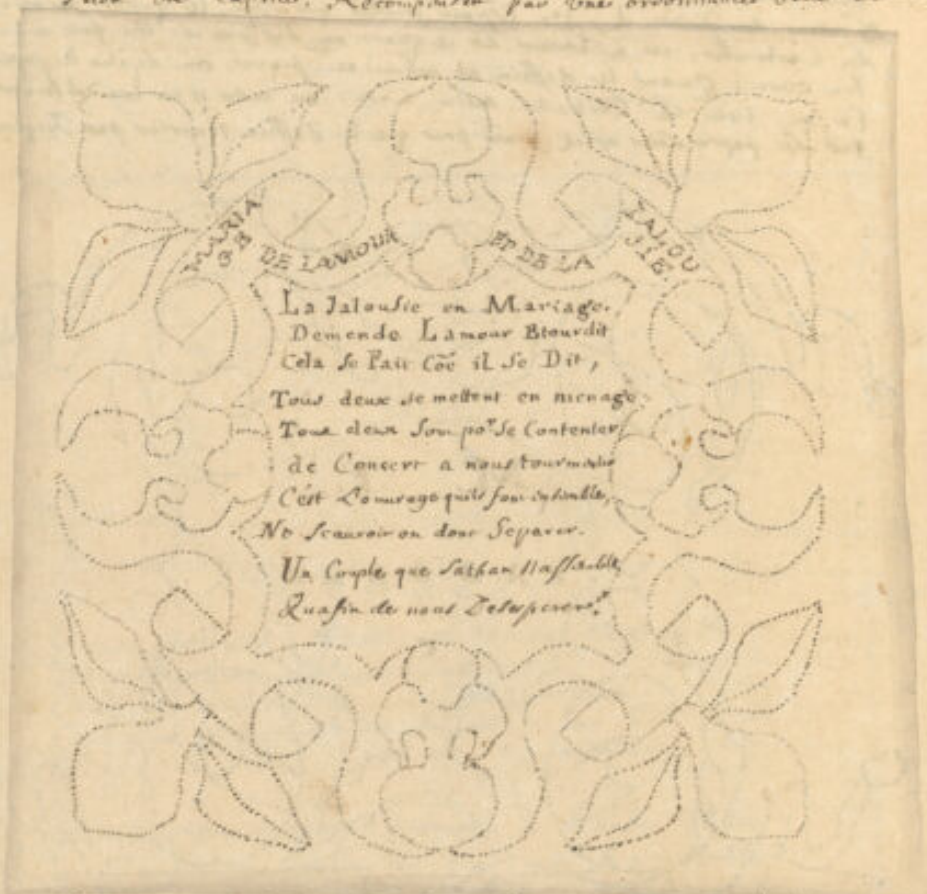 par une ordonnance
MARIA
GE DE LAMOUR ET DE LA IALOU
JIE.
La Jalousie en Mariage.
Demende Lamour Etourdit
Cela se Fait Cõe il se Dit,
Tous deux se mettent en menage
Tous deux sont po.r se Contenter
de Concert a nous tourmenter
C'ést L'ouurage quils font ensemble,
Ne scauroit on donc Separer.
Un Couple que Sathan n'assemble,
Qu'afin de nous Desesperer?